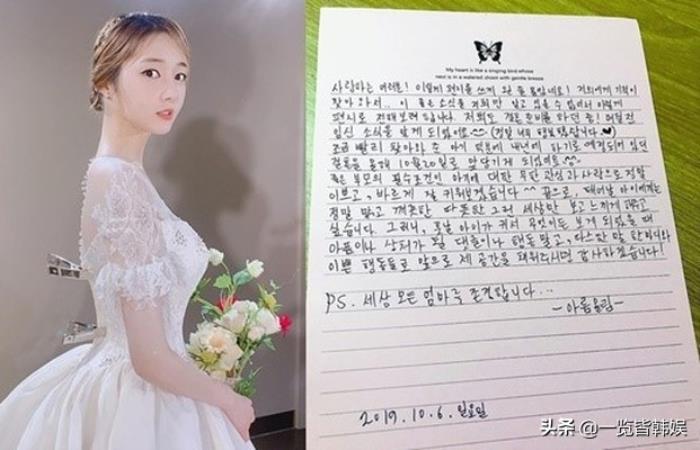 My heart is like a singing bird whose
nest is in a watered shoot with gentle breeze
사랑하는 여러분! 이렇게 편지를 쓰게 될 줄 몰랐네요! 저희에게 기적이
찾아와서.. 이 좋은 소식을 저희만 알고 있을 수 없어서 이렇게
편지로 전해보려 합니다. 저희도 결혼 준비를 하던 중!
임신 소식을 알게 되었어요^^ (정말 너무 행복했습니다♥)
조금 빨리 찾아와 준 아기 덕분에 내년에 하기로 예정되어 있던
결혼을 올해 10월20일로 앞당기게 되었어요^^
좋은 부모의 필수조건인 아기에 대한 무한 관심과 사랑으로 정말
이쁘고, 바르게 잘 키워보겠습니다^^ 끝으로, 태어날 아이에게는
정말 맑고 깨끗한 따뜻한 그런 세상만 보고 느끼게 해주고
싶습니다. 그러니, 훗날 아이가 커서 무엇이든 보게 되었을 때
아픔이나 상처가 될 행동 말고, 다스한 말 한마디와
이쁜 행동들로 앞으로 제 공간을 채워주시면 감사하겠습니다!
PS. 세상 모든 엄마를 존경합니다...
-아름올림-
2019. 10. 6. 일요일
头条 @一览皆韩娱